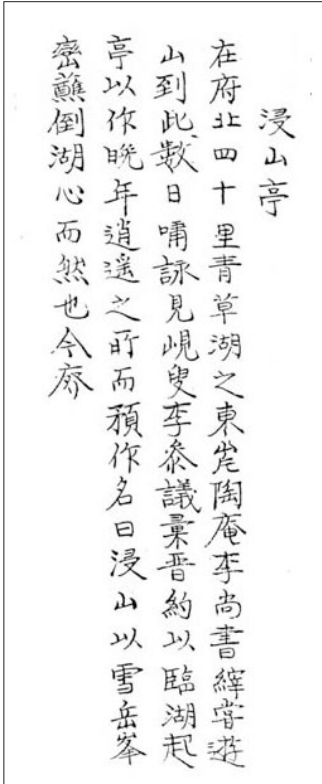 浸山亭
在府北四十里青草湖之東岸陶庵李尚書縡甞遊
山到此數日嘯詠見峴叟李叅議彙晋約以臨湖起
亭以作晩年逍遥之所而預作名曰浸山以雪岳峯
巒蘸倒湖心而然也今廢